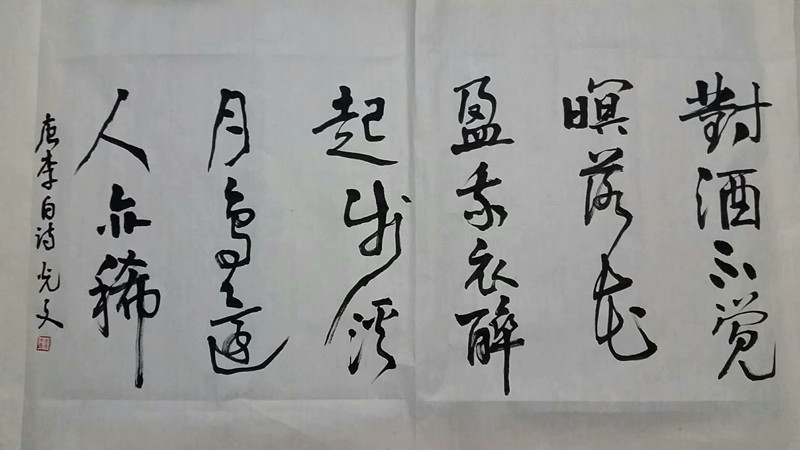 對酒不覺
暝落花
盈我衣醉
起步溪
月鳥還
人亦稀
唐李白诗 光文